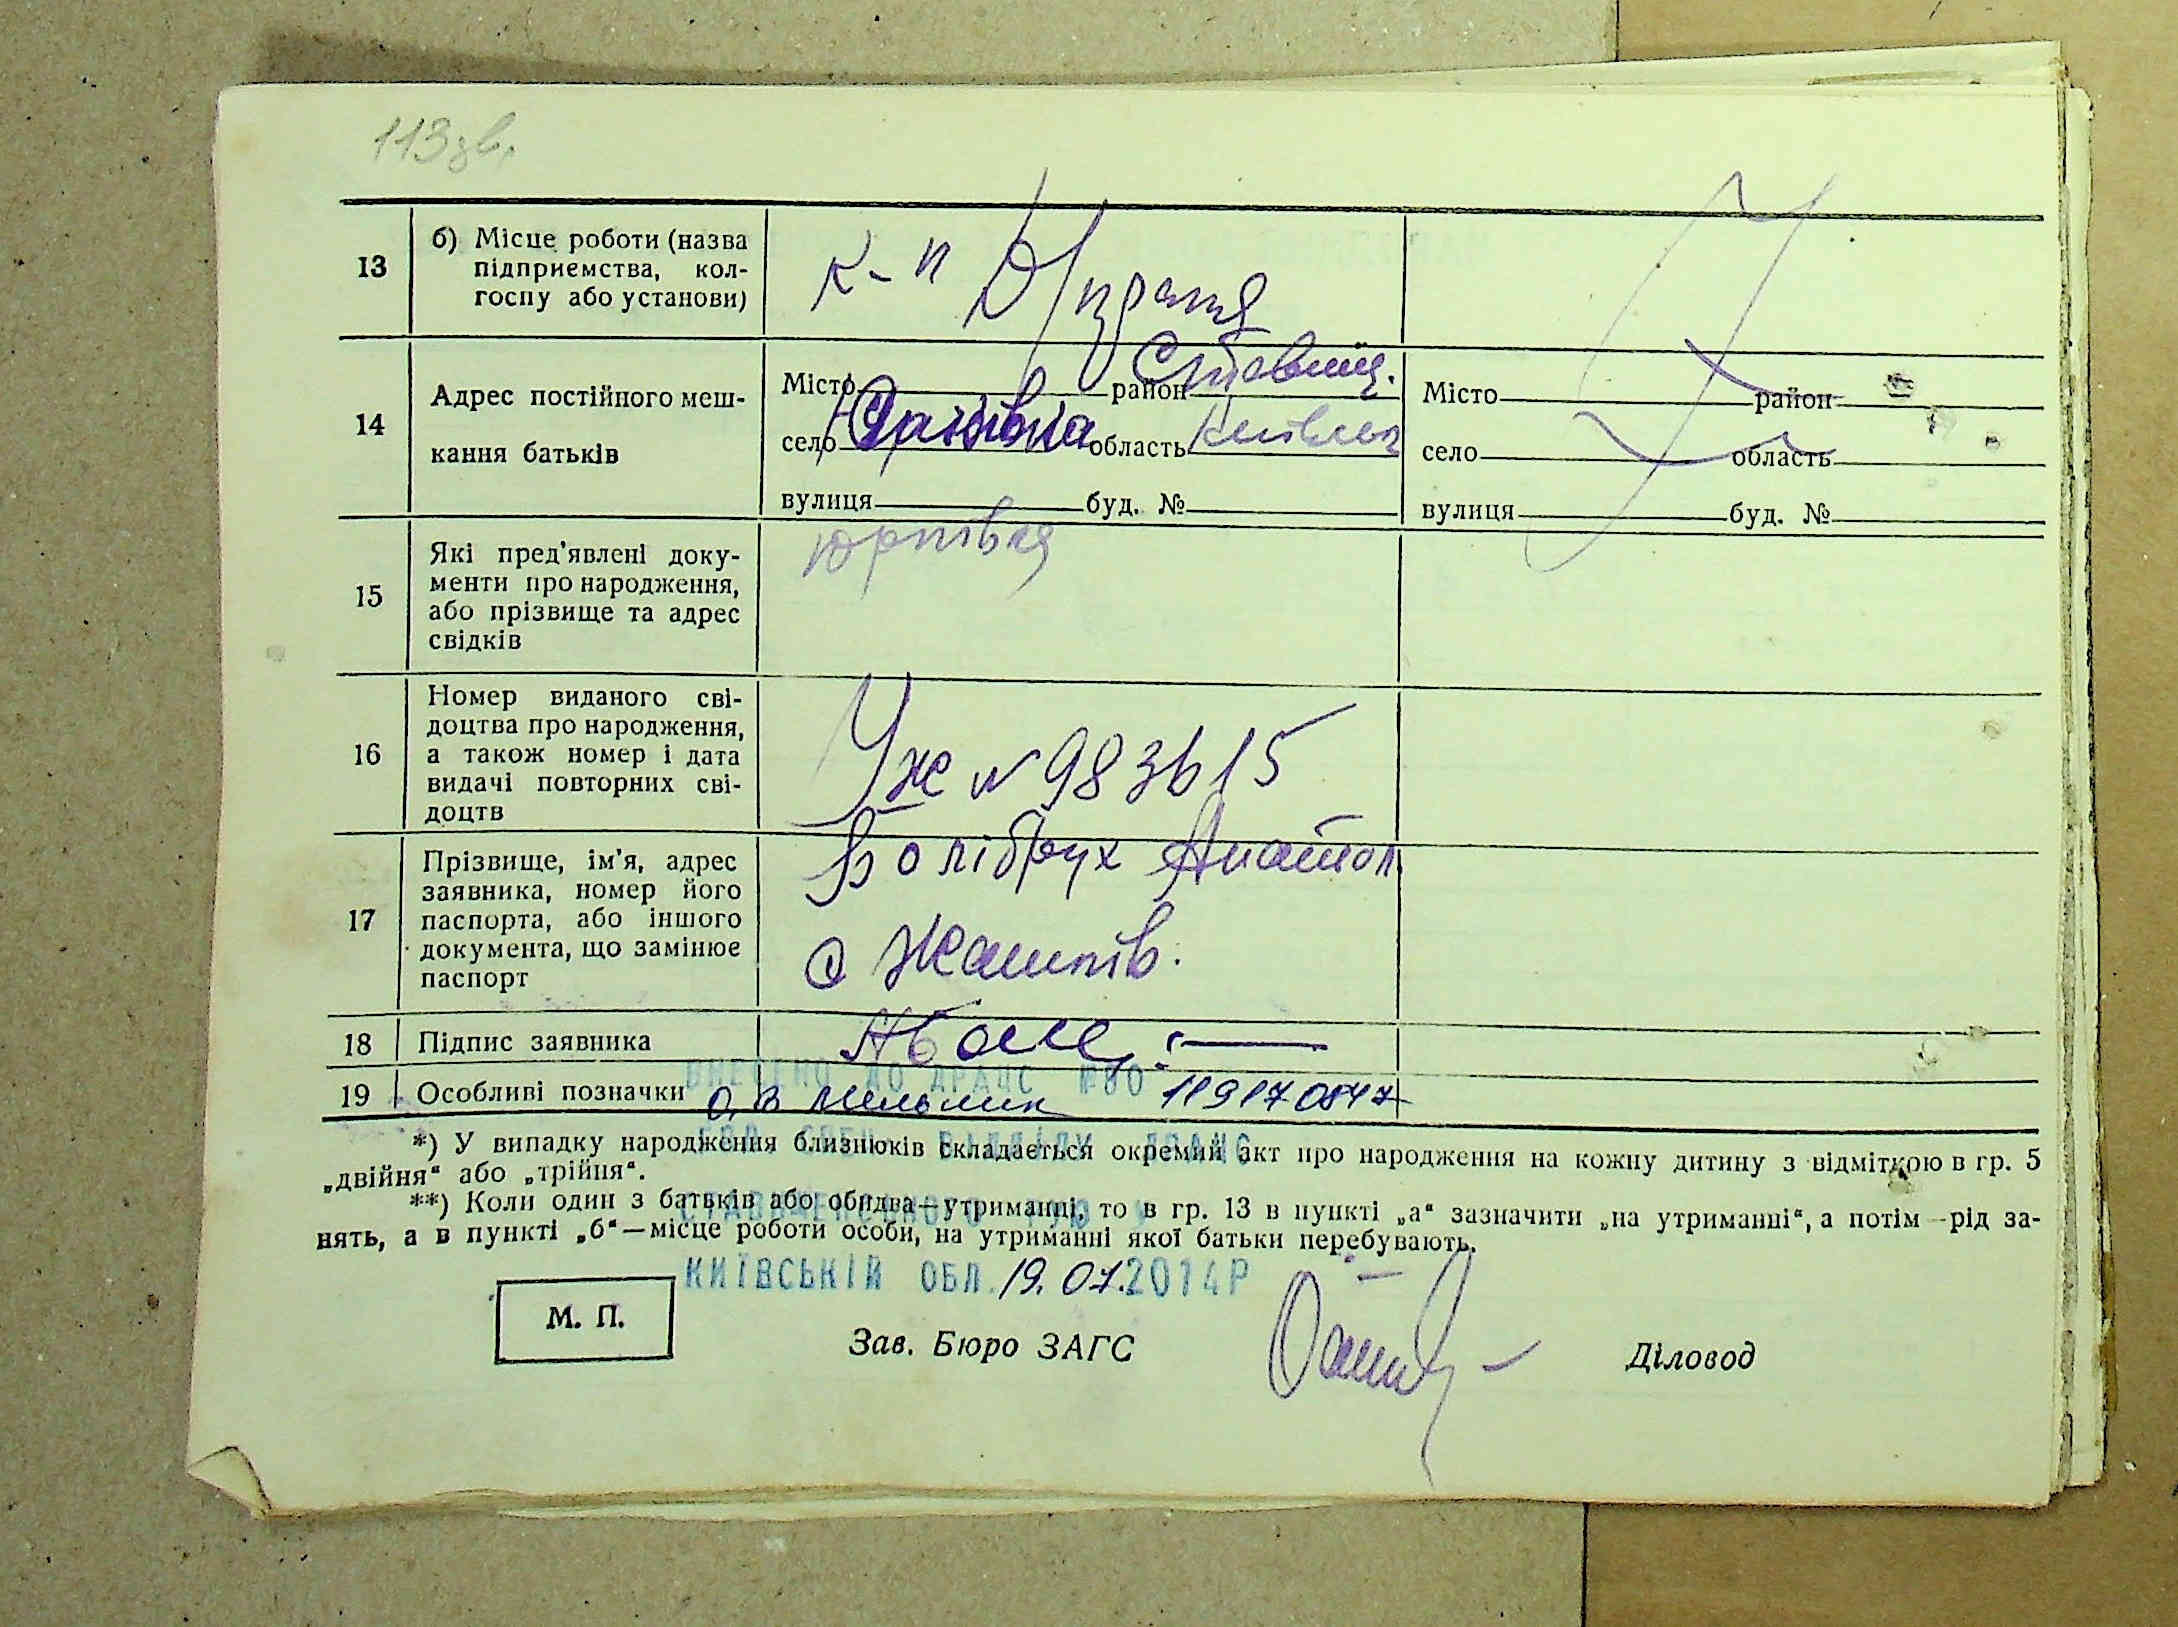 113 зв.
13
б) Місце роботи (назва
підприємства, кол-
госпу або установи)
к-п
14
Адрес постійного меш-
кання батьків
Місто район Ставищ.
село область Київськ
вулиця буд. №
Місто район
село область
вулиця буд. №
15
Які пред'явлені доку-
менти про народження,
або прізвище та адрес
свідків
Юрпівка
16
Номер виданого сві-
доцтва про народження,
а також номер і дата
видачі повторних сві-
доцтв
№ 983615
17
Прізвище, ім'я, адрес
заявника, номер його
паспорта, або іншого
документа, що замінює
паспорт
Болібрух Анатол
с Жашків.
18
Підпис заявника
19
Особливі позначки
ВНЕСЕНО ДО ДРАЦС №00
О.В Мельник 119170847
*) У випадку народження близнюків складається окремий акт про народження на кожну дитину з відміткою в гр. 5
„двійня“ або „трійня“.
**) Коли один з батьків або обидва—утриманці, то в гр. 13 в пункті „а“ зазначити „на утриманні“, а потім—рід за-
нять, а в пункті „б“—місце роботи особи, на утриманні якої батьки перебувають.
КИЇВСЬКІЙ ОБЛ. 19.07.2014Р
М. П.
Зав. Бюро ЗАГС
Діловод